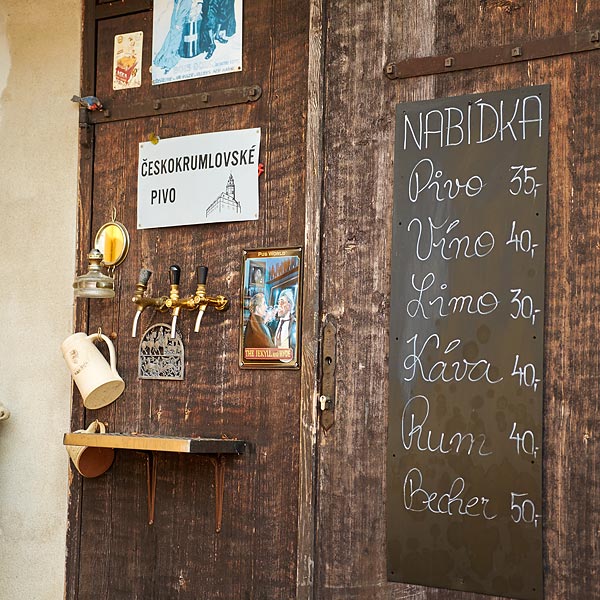 ČESKOKRUMLOVSKÉ
PIVO
PUB WORLD
THE JEKYLL and HYDE
NABÍDKA
Pivo 35,-
Víno 40,-
Limo 30,-
Káva 40,-
Rum 40,-
Becher 50,-